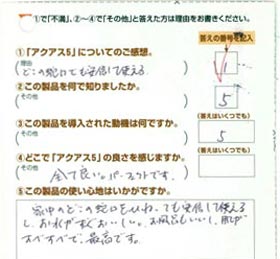 ①で「不満」、②〜④で「その他」と答えた方は理由をお書きください。
答えの番号を記入
①「アクアス5」についてのご感想。
(理由
どこの蛇口でも安心して使える ) 1
②この製品を何で知りましたか。
(その他 ) 5
③この製品を導入された動機は何ですか。 (答えはいくつでも)
(その他 ) 5
④どこで「アクアス5」の良さを感じますか。 (答えはいくつでも)
(その他
全て良い。パーフェクトです。 )
⑤この製品の使い心地はいかがですか。
家中のどこの蛇口をひねっても安心して使える
し、お水がすぐおいしい。お風呂もいいし、肌が
すべすべで、最高です。